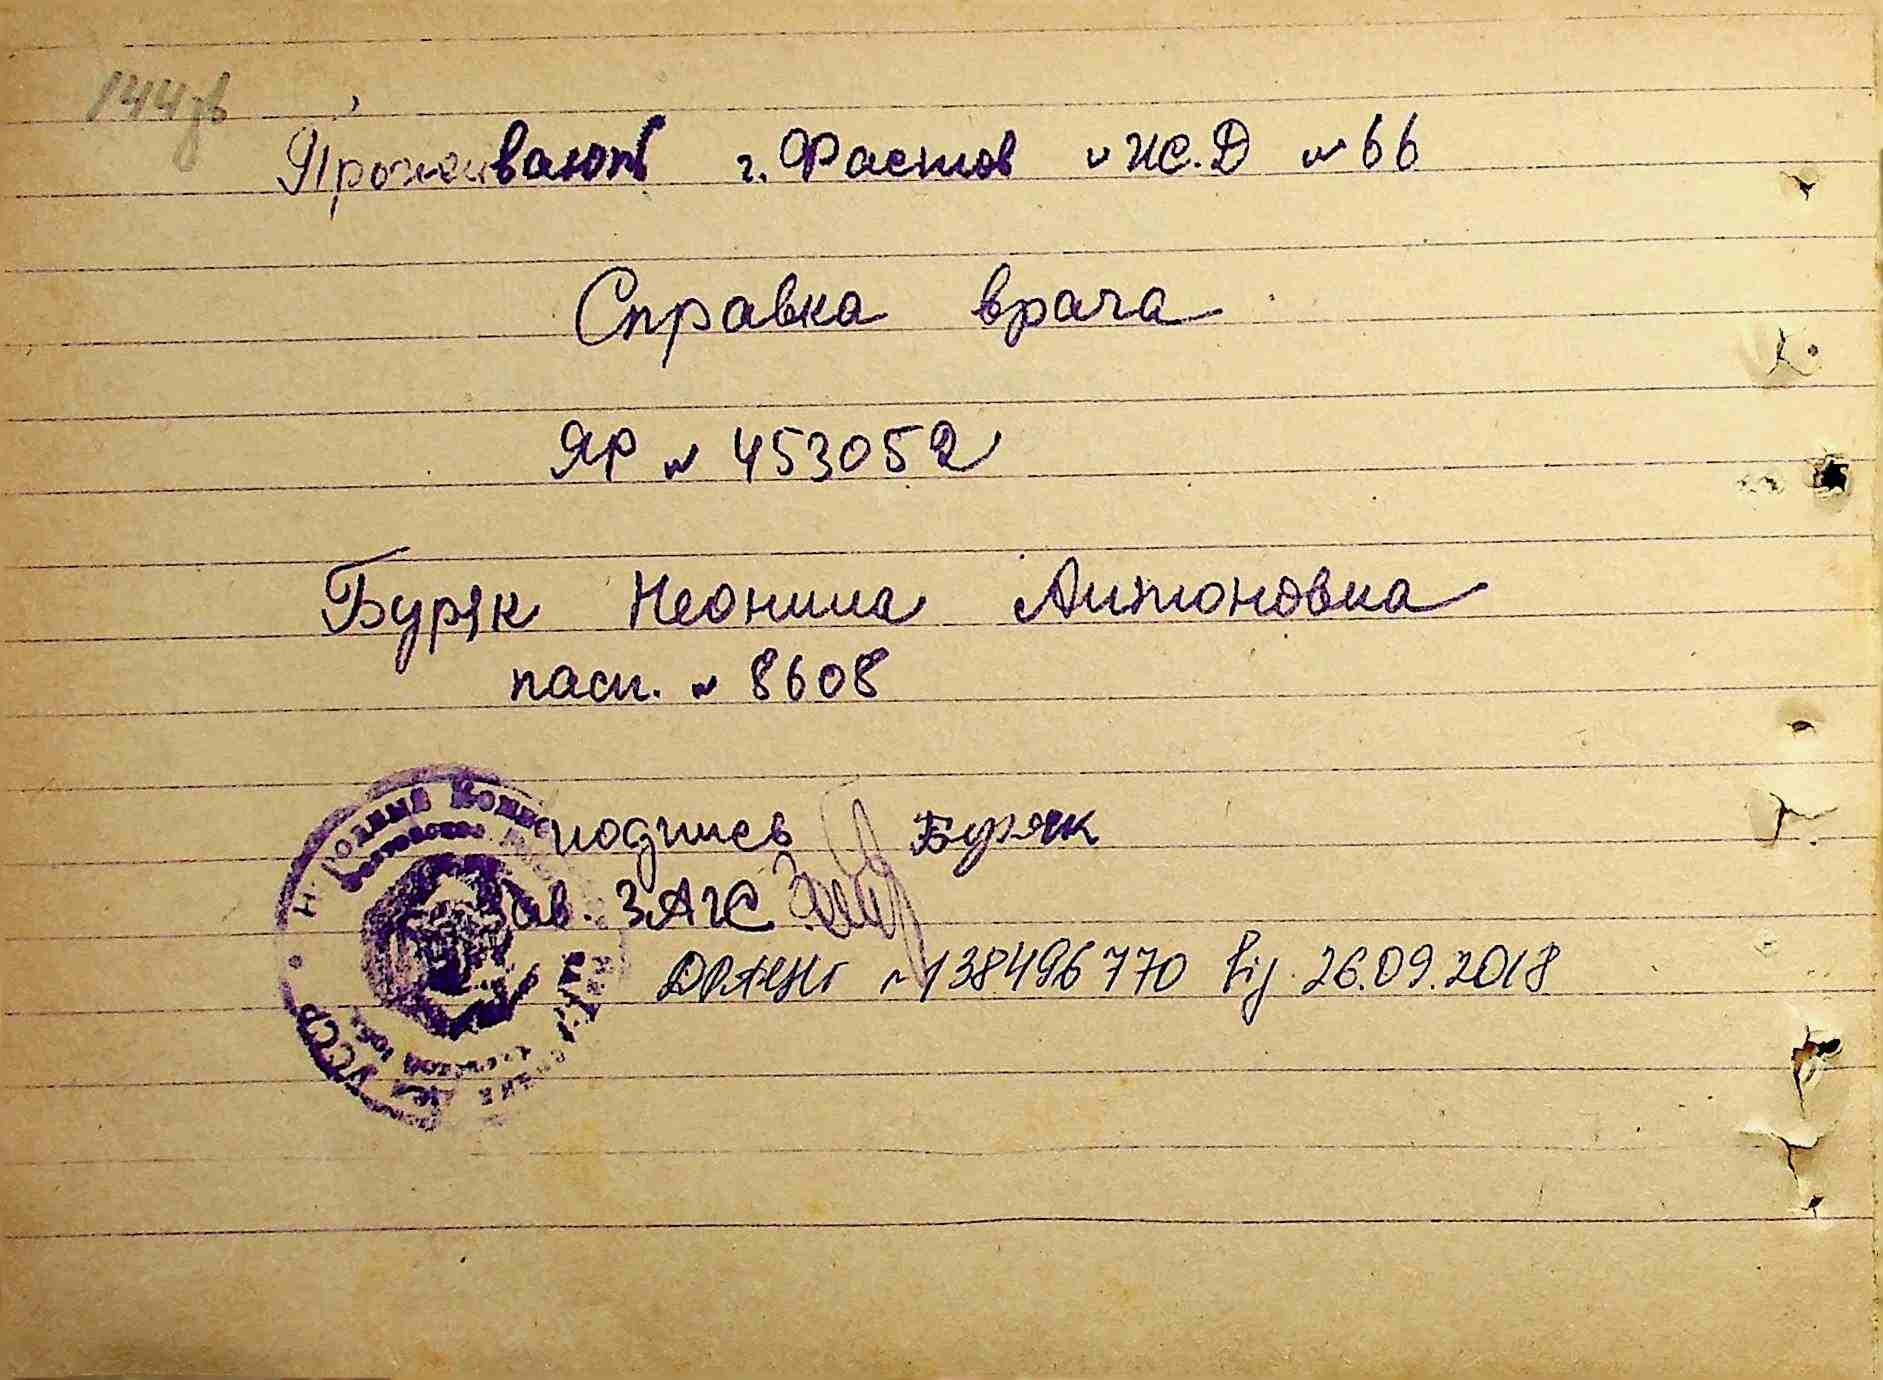 144зв
Проживают г. Фастов ж.д №66
Справка врача
ЯР № 453052
Буряк Неонила Антоновна
пасп. № 8608
подпись Буряк
зав. ЗАГС
ДРАЦСГ №138496770 від 26.09.2018
Народный Комис
УССР